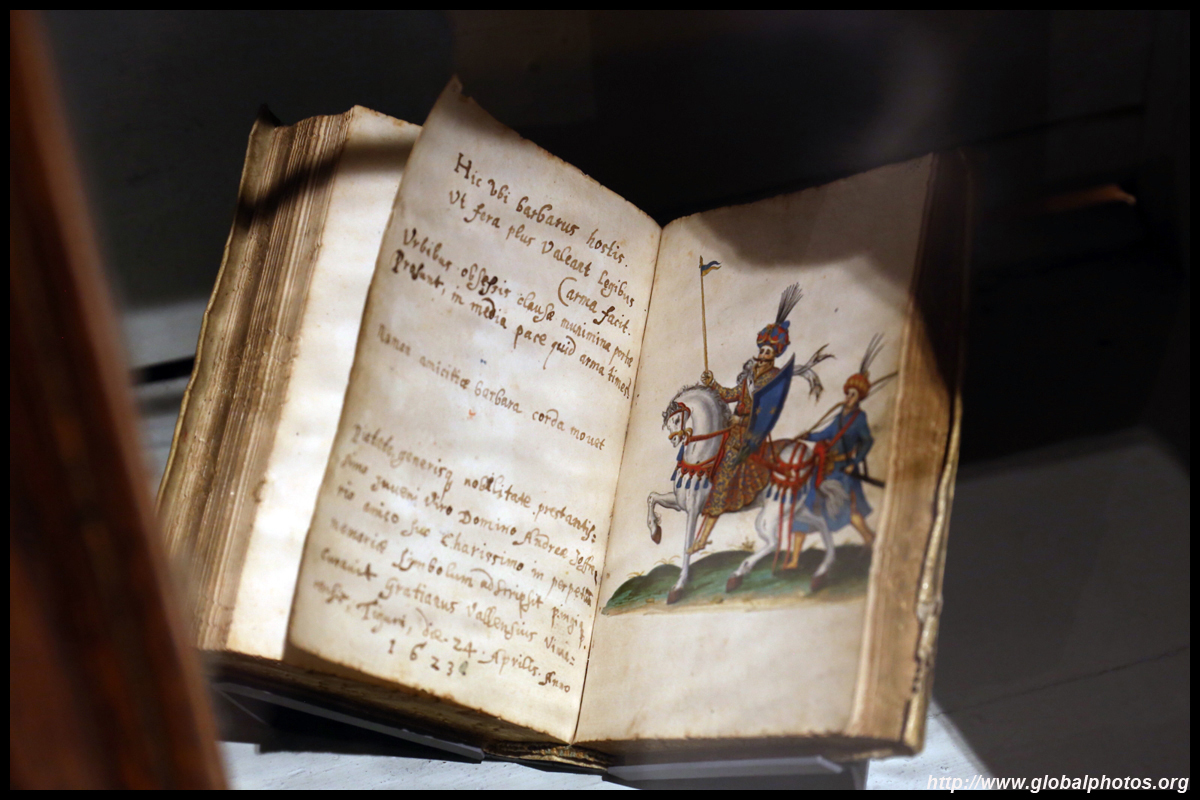 Hic Vbi barbarus hostis.
Vt fera plus Valeant legibus
arma facit.
Vrbibus obsessis clausæ munimina portæ
Prosunt, in media pace quid arma times?
amicitiæ barbara corda mouet
generisq nobilitate præstantis=
simo Juveni Viro Domino Andreæ
amico suo Charissimo in perpetuã
memoriæ Symbolum adscripsit pingiq.
curauit Gratianus Vallensius
Tiguri, die. 24. Aprilis. Anno
1623
http://www.globalphotos.org